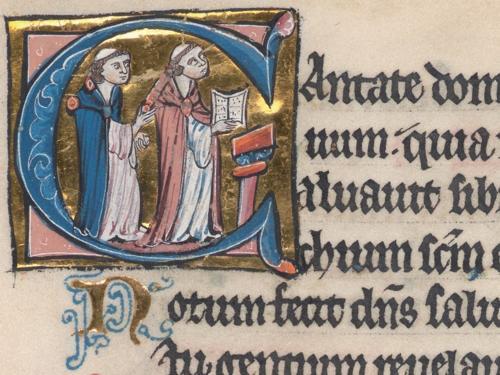 CAntate dom
uum. quia
aluauit sibi
chium scm̄ e
Notum fecit dn̄s salu
In gentium reuelau